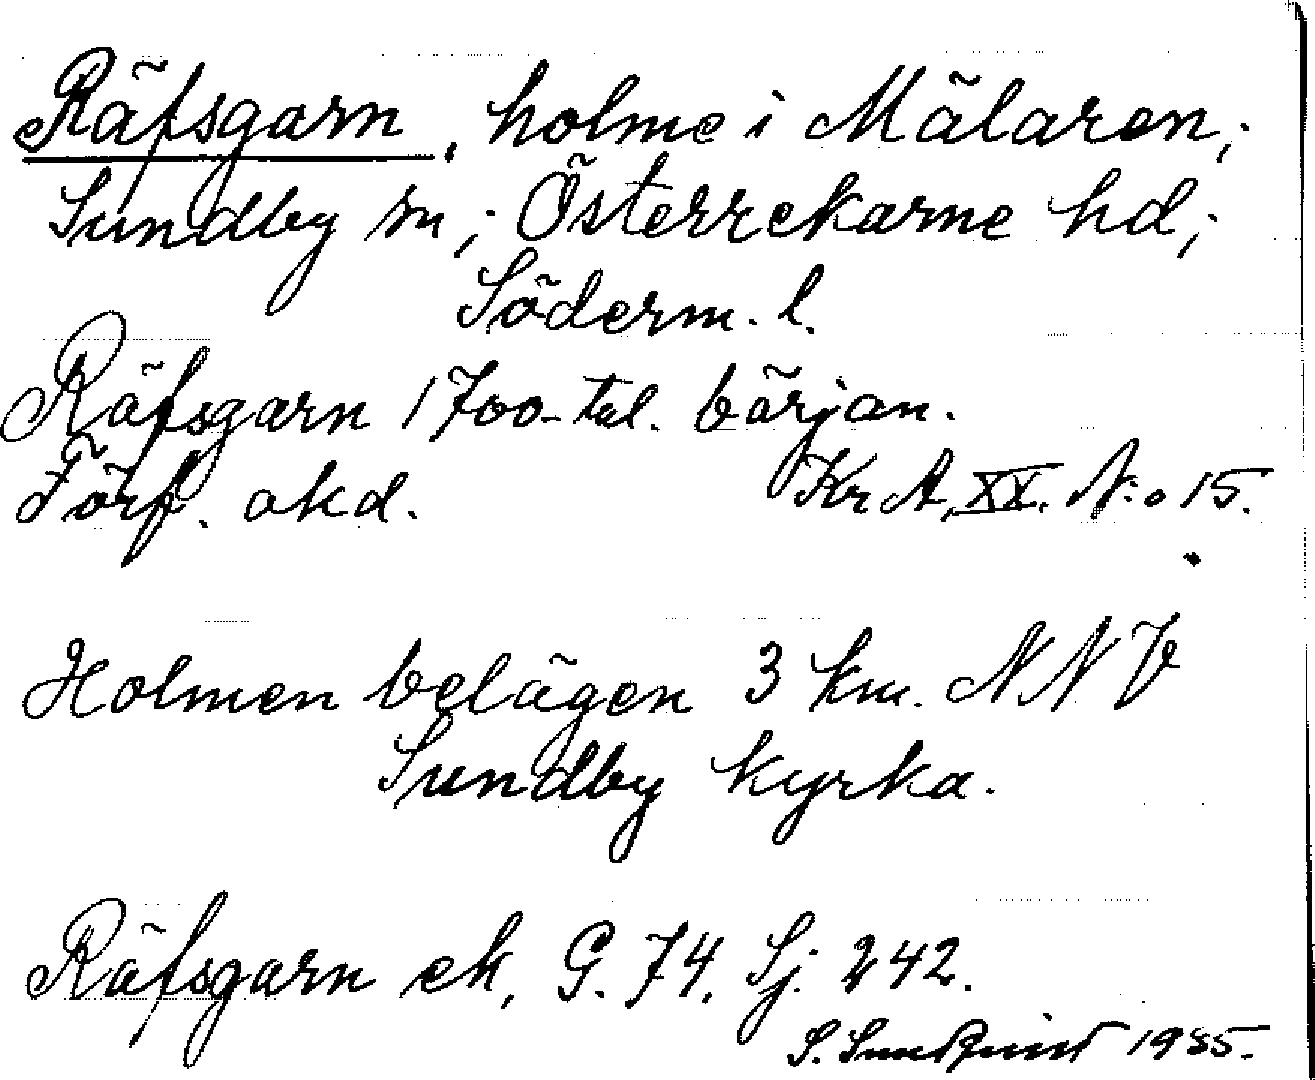 Räfsgarn, holme i Mälaren;
Sundby sn; Österrekarne hd;
Söderm. l.
Räfsgarn 1700-tal. början.
Förf. okd. Kr A, XX. N:o 15.
Holmen belägen 3 km. NNV
Sundby kyrka.
Räfsgarn ek, G. 74, Sj. 242.
S. Sundquist 1935.